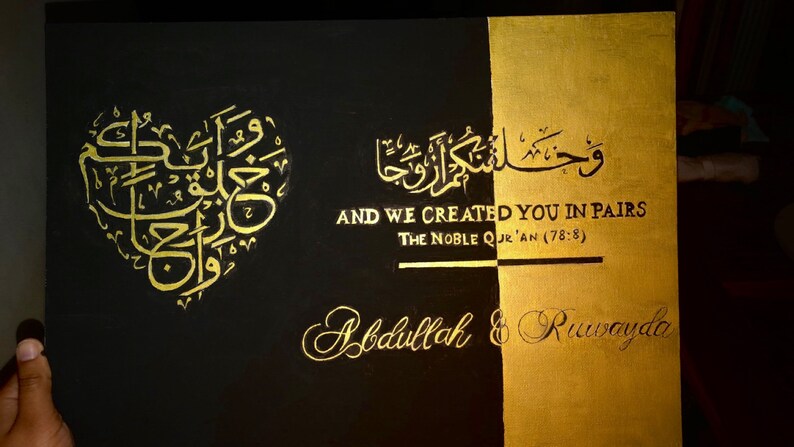 وَخَلَقْنَكُمْ أَزْوَجًا
وَخَلَقْنَكُمْ أَزْوَجًا
AND WE CREATED YOU IN PAIRS
THE NOBLE QUR'AN (78:8)
Abdullah & Ruwayda